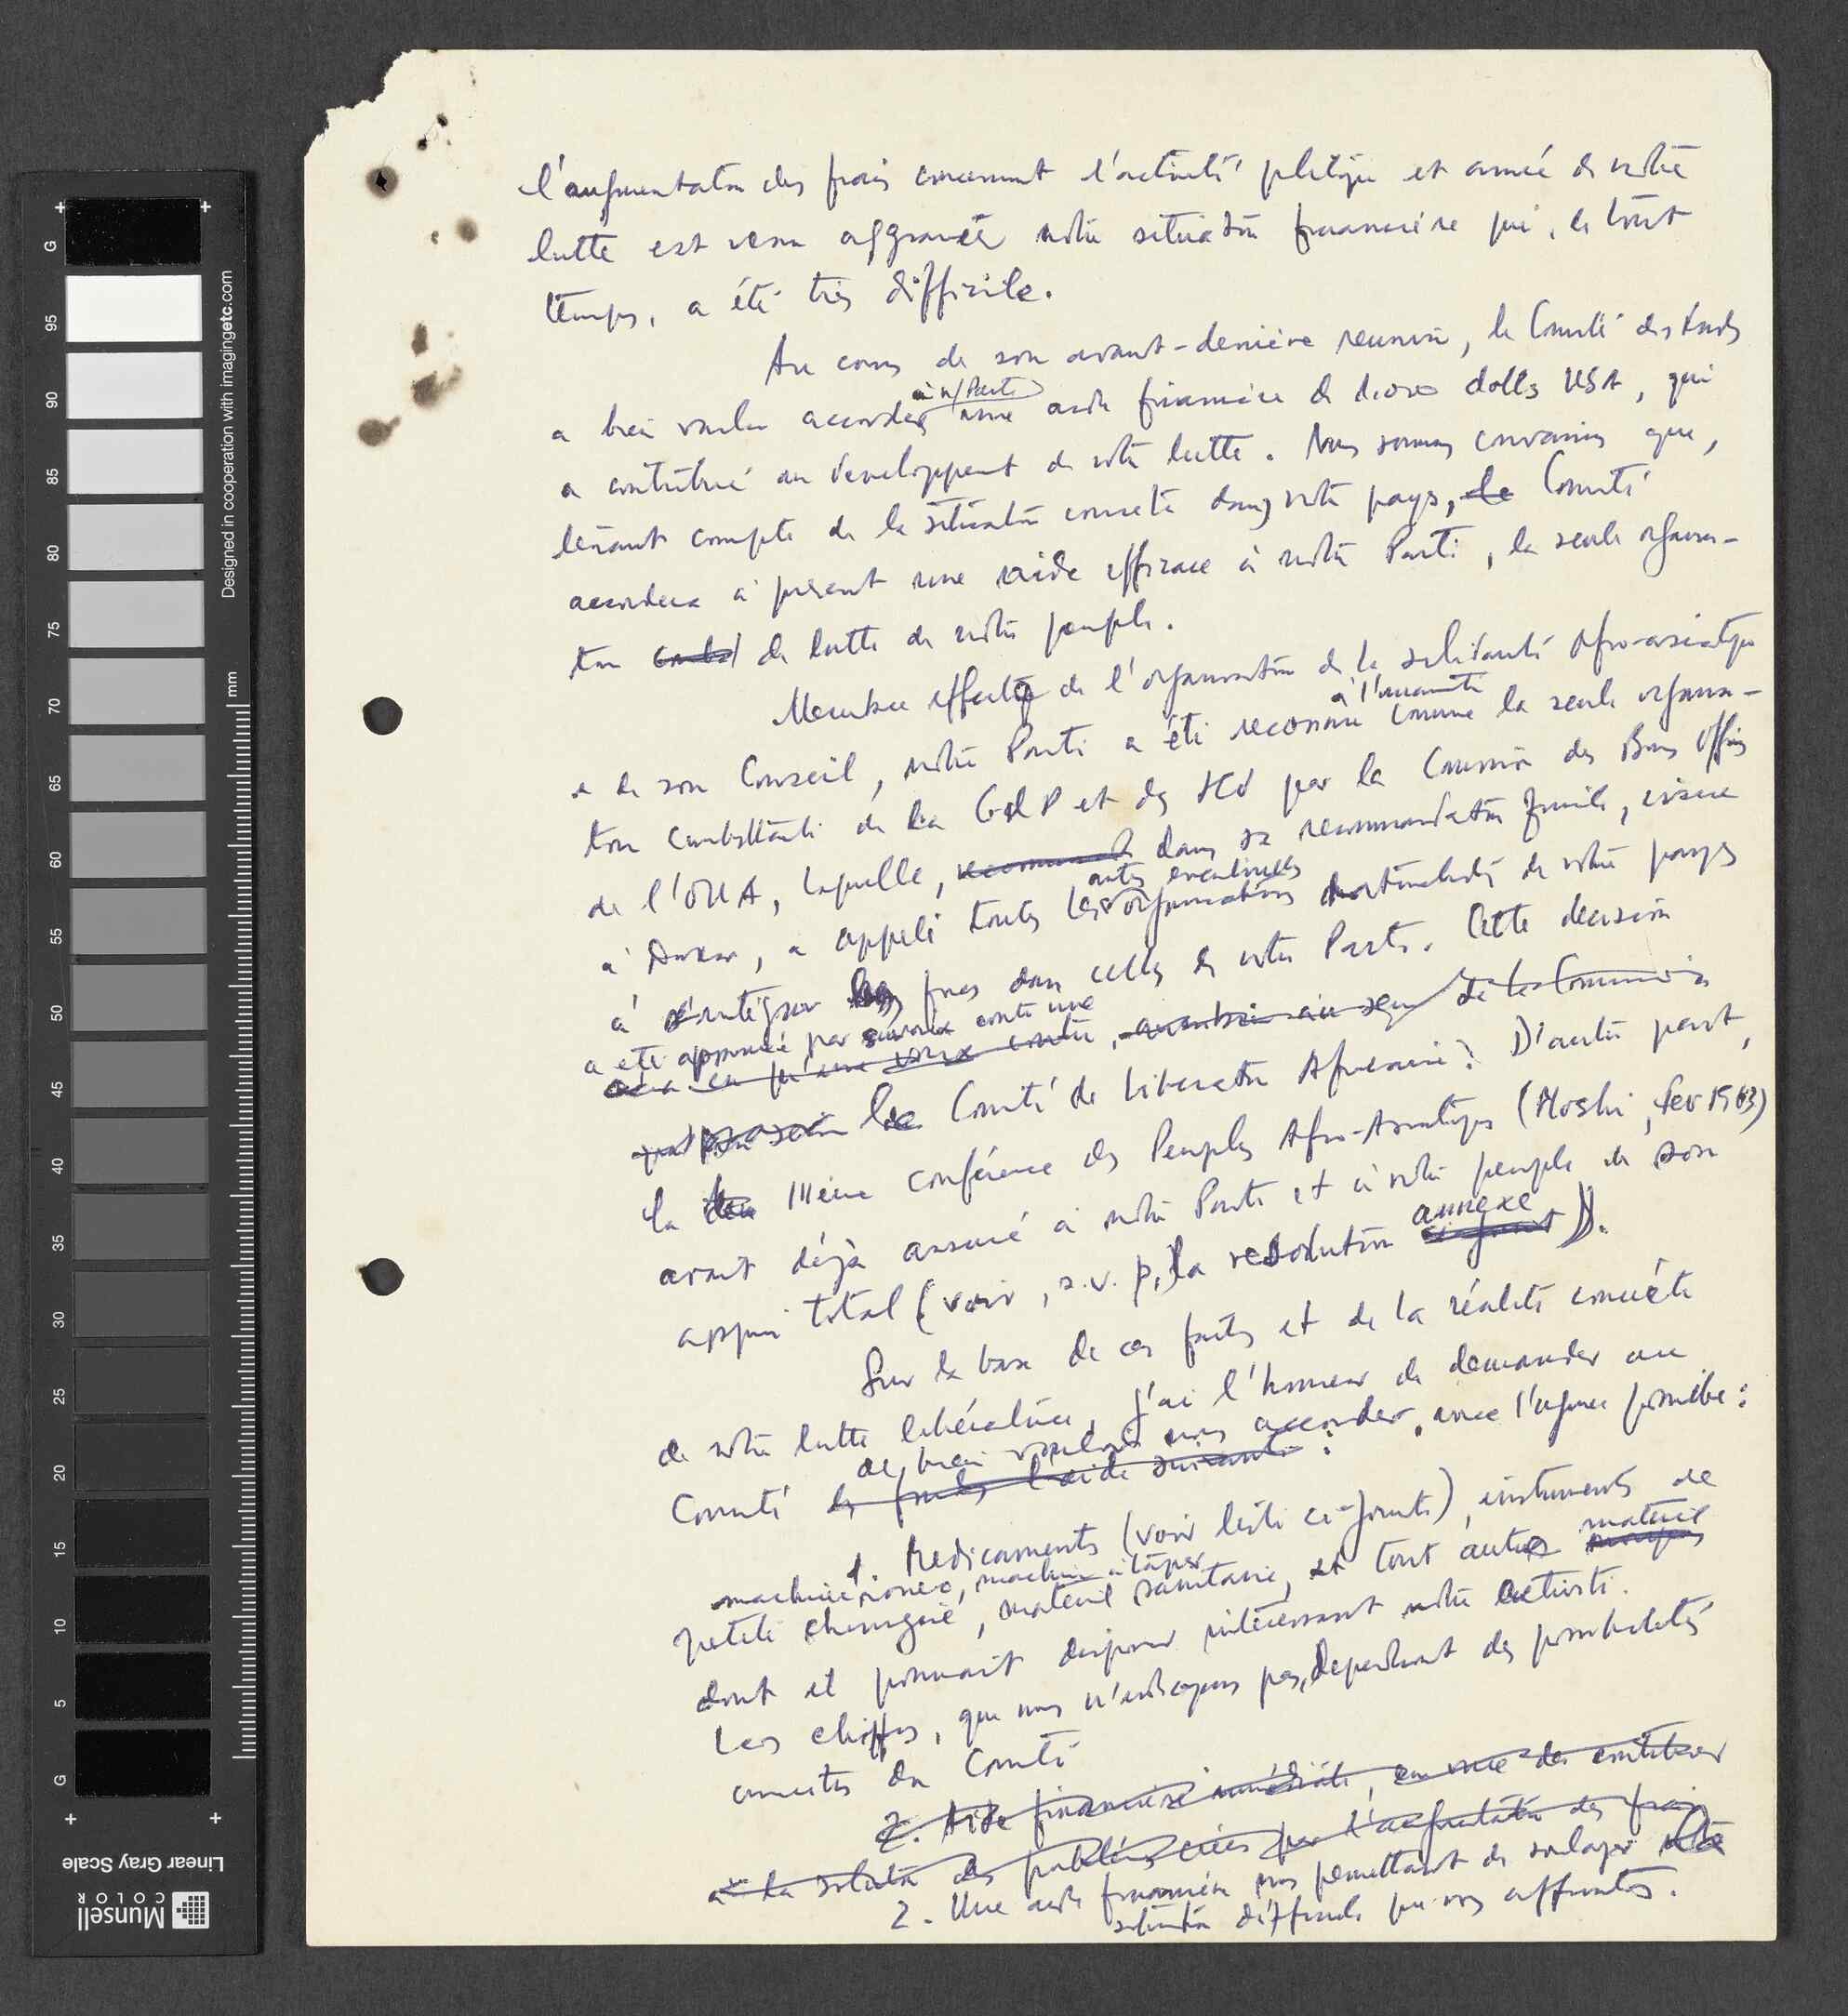 l'augmentation des frais concernant l'activité politique et armée de notre
lutte est venu aggraver notre situation financière qui, de tout
temps, a été très difficile.
Au cours de son avant-dernière reunion, le Comité des Fonds
a bien voulu accorder à n/Parti une aide financière de dolls USA, qui
a contribué au developpement de notre lutte. Nous sommes convaincus que,
tenant compte de la situation concrete dans notre pays, le Comité
accordera à présent une aide efficace à notre Parti, la seule organisa-
tion de lutte de notre peuple.
Membre effectif de l'organisation de la solidarité Afro-asiatique
et de son Conseil, notre Parti a été reconnu à l'unanimité comme la seule organisa-
tion combattante de la G«P» et des ICV par la Commission des Bons Offices
de l'OUA, laquelle, dans sa recommandation finale, issue
à Dakar, a appelé toutes les autres eventuelles organisations nationalistes de notre pays
à s'intégrer dans celles de notre Parti. Cette decision
a été approuvé par contre une
le Comité de Liberation Africaine. D'autre part,
la IIIème conférence des Peuples Afro-Asiatiques (Moshi, fev 1963)
avait déjà assuré à notre Parti et à notre peuple de son
appui total (voir, s.v.p., la resolution annexe).
Sur la base de ces faits et de la réalité concrète
de notre lutte libératrice, j'ai l'honneur de demander au
Comité de bien vouloir nous accorder, avec l'urgence possible:
les l'aide suivante:
1. Medicaments (voir liste ci-jointe), instruments de
machine roneo, machine à taper
petite chirurgie, matériel sanitaire, et tout autre matériel
dont il pourrait disposer intéressant notre activité.
Les chiffres, que nous n'indiquons pas, dependront des possibilités
concretes du Comité
2. Aide financière immédiate, en vue de contribuer
à la solution des problèmes créés par l'augmentation des frais
2. Une aide financière nous permettant de soulager notre
situation difficile que nous affrontons.
Linear Gray Scale
Munsell
COLOR
Designed in cooperation with imagingetc.com
mm
G
95
90
85
80
75
70
65
60
55
50
45
40
35
30
25
20
15
10
5
G